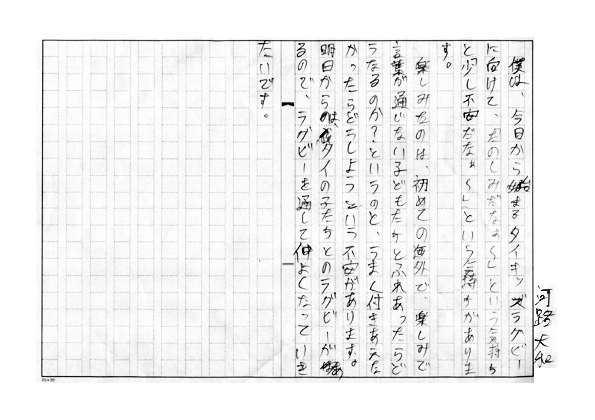 河路大和
僕は、今日から始まるタイキッズラグビー
に向けて、「たのしみだなぁ〜」という気持ち
と少し不安だなぁ〜」という気持ちがありま
す。
楽しみなのは、初めての海外で、楽しみで
言葉が通じない子どもたちとふれあったらど
うなるのか？というのと、うまく付きあえな
かったらどうしようという不安があります。
明日からは、タイの子たちとのラグビーが始
るので、ラグビーを通して仲よくなっていき
たいです。
20×20